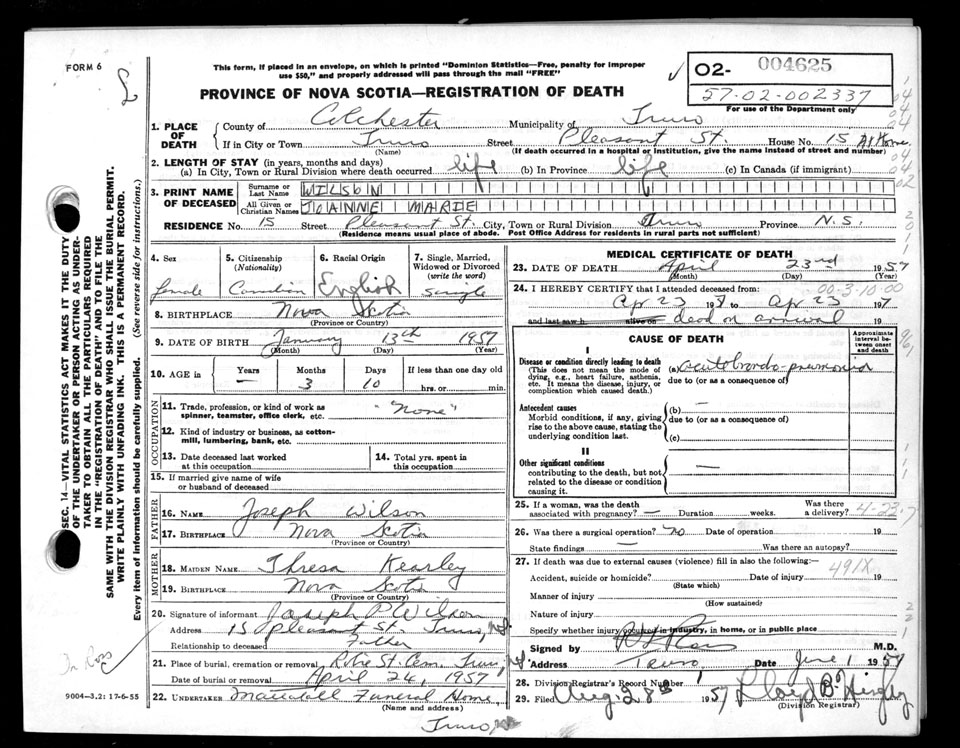 FORM 6
This form, if placed in an envelope, on which is printed "Dominion Statistics—Free, penalty for improper
use $50," and properly addressed will pass through the mail "FREE"
PROVINCE OF NOVA SCOTIA—REGISTRATION OF DEATH
02- 004625
57-02-002337
For use of the Department only
1. PLACE OF DEATH
County of Colchester Municipality of Truro
If in City or Town Truro Street Pleasant St. House No. 15 At Home
(Name) (If death occurred in a hospital or institution, give the name instead of street and number)
2. LENGTH OF STAY (in years, months and days)
(a) In City, Town or Rural Division where death occurred life (b) In Province life (c) In Canada (if immigrant)
3. PRINT NAME OF DECEASED
Surname or Last Name WILSON
All Given or Christian Names JOANNE MARIE
RESIDENCE No. 15 Street Pleasant St. City, Town or Rural Division Truro Province N.S.
(Residence means usual place of abode. Post Office Address for residents in rural parts not sufficient)
4. Sex
5. Citizenship (Nationality)
6. Racial Origin
7. Single, Married, Widowed or Divorced (write the word)
female Canadian English single
8. BIRTHPLACE Nova Scotia
(Province or Country)
9. DATE OF BIRTH January 13th 1957
(Month) (Day) (Year)
10. AGE in Years Months Days If less than one day old
— 3 10 hrs. or min.
OCCUPATION
11. Trade, profession, or kind of work as spinner, teamster, office clerk, etc. "None"
12. Kind of industry or business, as cotton-mill, lumbering, bank, etc.
13. Date deceased last worked at this occupation
14. Total yrs. spent in this occupation
15. If married give name of wife or husband of deceased
FATHER
16. NAME Joseph Wilson
17. BIRTHPLACE Nova Scotia
(Province or Country)
MOTHER
18. MAIDEN NAME Thresa Kearley
19. BIRTHPLACE Nova Scotia
(Province or Country)
20. Signature of informant Joseph P Wilson
Address 15 Pleasant St. Truro, N.S.
Relationship to deceased Father
21. Place of burial, cremation or removal Robie St. Cem. Truro, N.S.
Date of burial or removal April 24, 1957
22. UNDERTAKER Mattatall Funeral Home,
(Name and address)
Truro, N.S.
MEDICAL CERTIFICATE OF DEATH
23. DATE OF DEATH April 23rd 1957
(Month) (Day) (Year)
24. I HEREBY CERTIFY that I attended deceased from: 00-3-10-00
Apr 23 1957 to Apr 23 1957
and last saw h alive on dead on arrival 19
CAUSE OF DEATH
Approximate interval between onset and death
I
Disease or condition directly leading to death
(This does not mean the mode of dying, e.g., heart failure, asthenia, etc. It means the disease, injury, or complication which caused death.)
(a) acute broncho-pneumonia
due to (or as a consequence of)
Antecedent causes
Morbid conditions, if any, giving rise to the above cause, stating the underlying condition last.
(b) —
due to (or as a consequence of)
(c)
II
Other significant conditions
contributing to the death, but not related to the disease or condition causing it.
—
25. If a woman, was the death associated with pregnancy? — Duration weeks. Was there a delivery? 4-23-7
26. Was there a surgical operation? no Date of operation 19
State findings — Was there an autopsy?
27. If death was due to external causes (violence) fill in also the following:—
491X
Accident, suicide or homicide? Date of injury 19
(State which)
Manner of injury
(How sustained)
Nature of injury
Specify whether injury occurred in industry, in home, or in public place
Signed by M.D.
Address Truro, Date June 1 1957
28. Division Registrar's Record Number
29. Filed Aug 28th 1957 Lloyd B.
(Division Registrar)
SEC. 14—VITAL STATISTICS ACT MAKES IT THE DUTY
OF THE UNDERTAKER OR PERSON ACTING AS UNDER-
TAKER TO OBTAIN ALL THE PARTICULARS REQUIRED
IN THE "REGISTRATION OF DEATH" AND TO FILE THE
SAME WITH THE DIVISION REGISTRAR WHO SHALL ISSUE THE BURIAL PERMIT.
WRITE PLAINLY WITH UNFADING INK. THIS IS A PERMANENT RECORD.
Every item of information should be carefully supplied. (See reverse side for instructions.)
Dr Ross
9004-3.2: 17-6-55